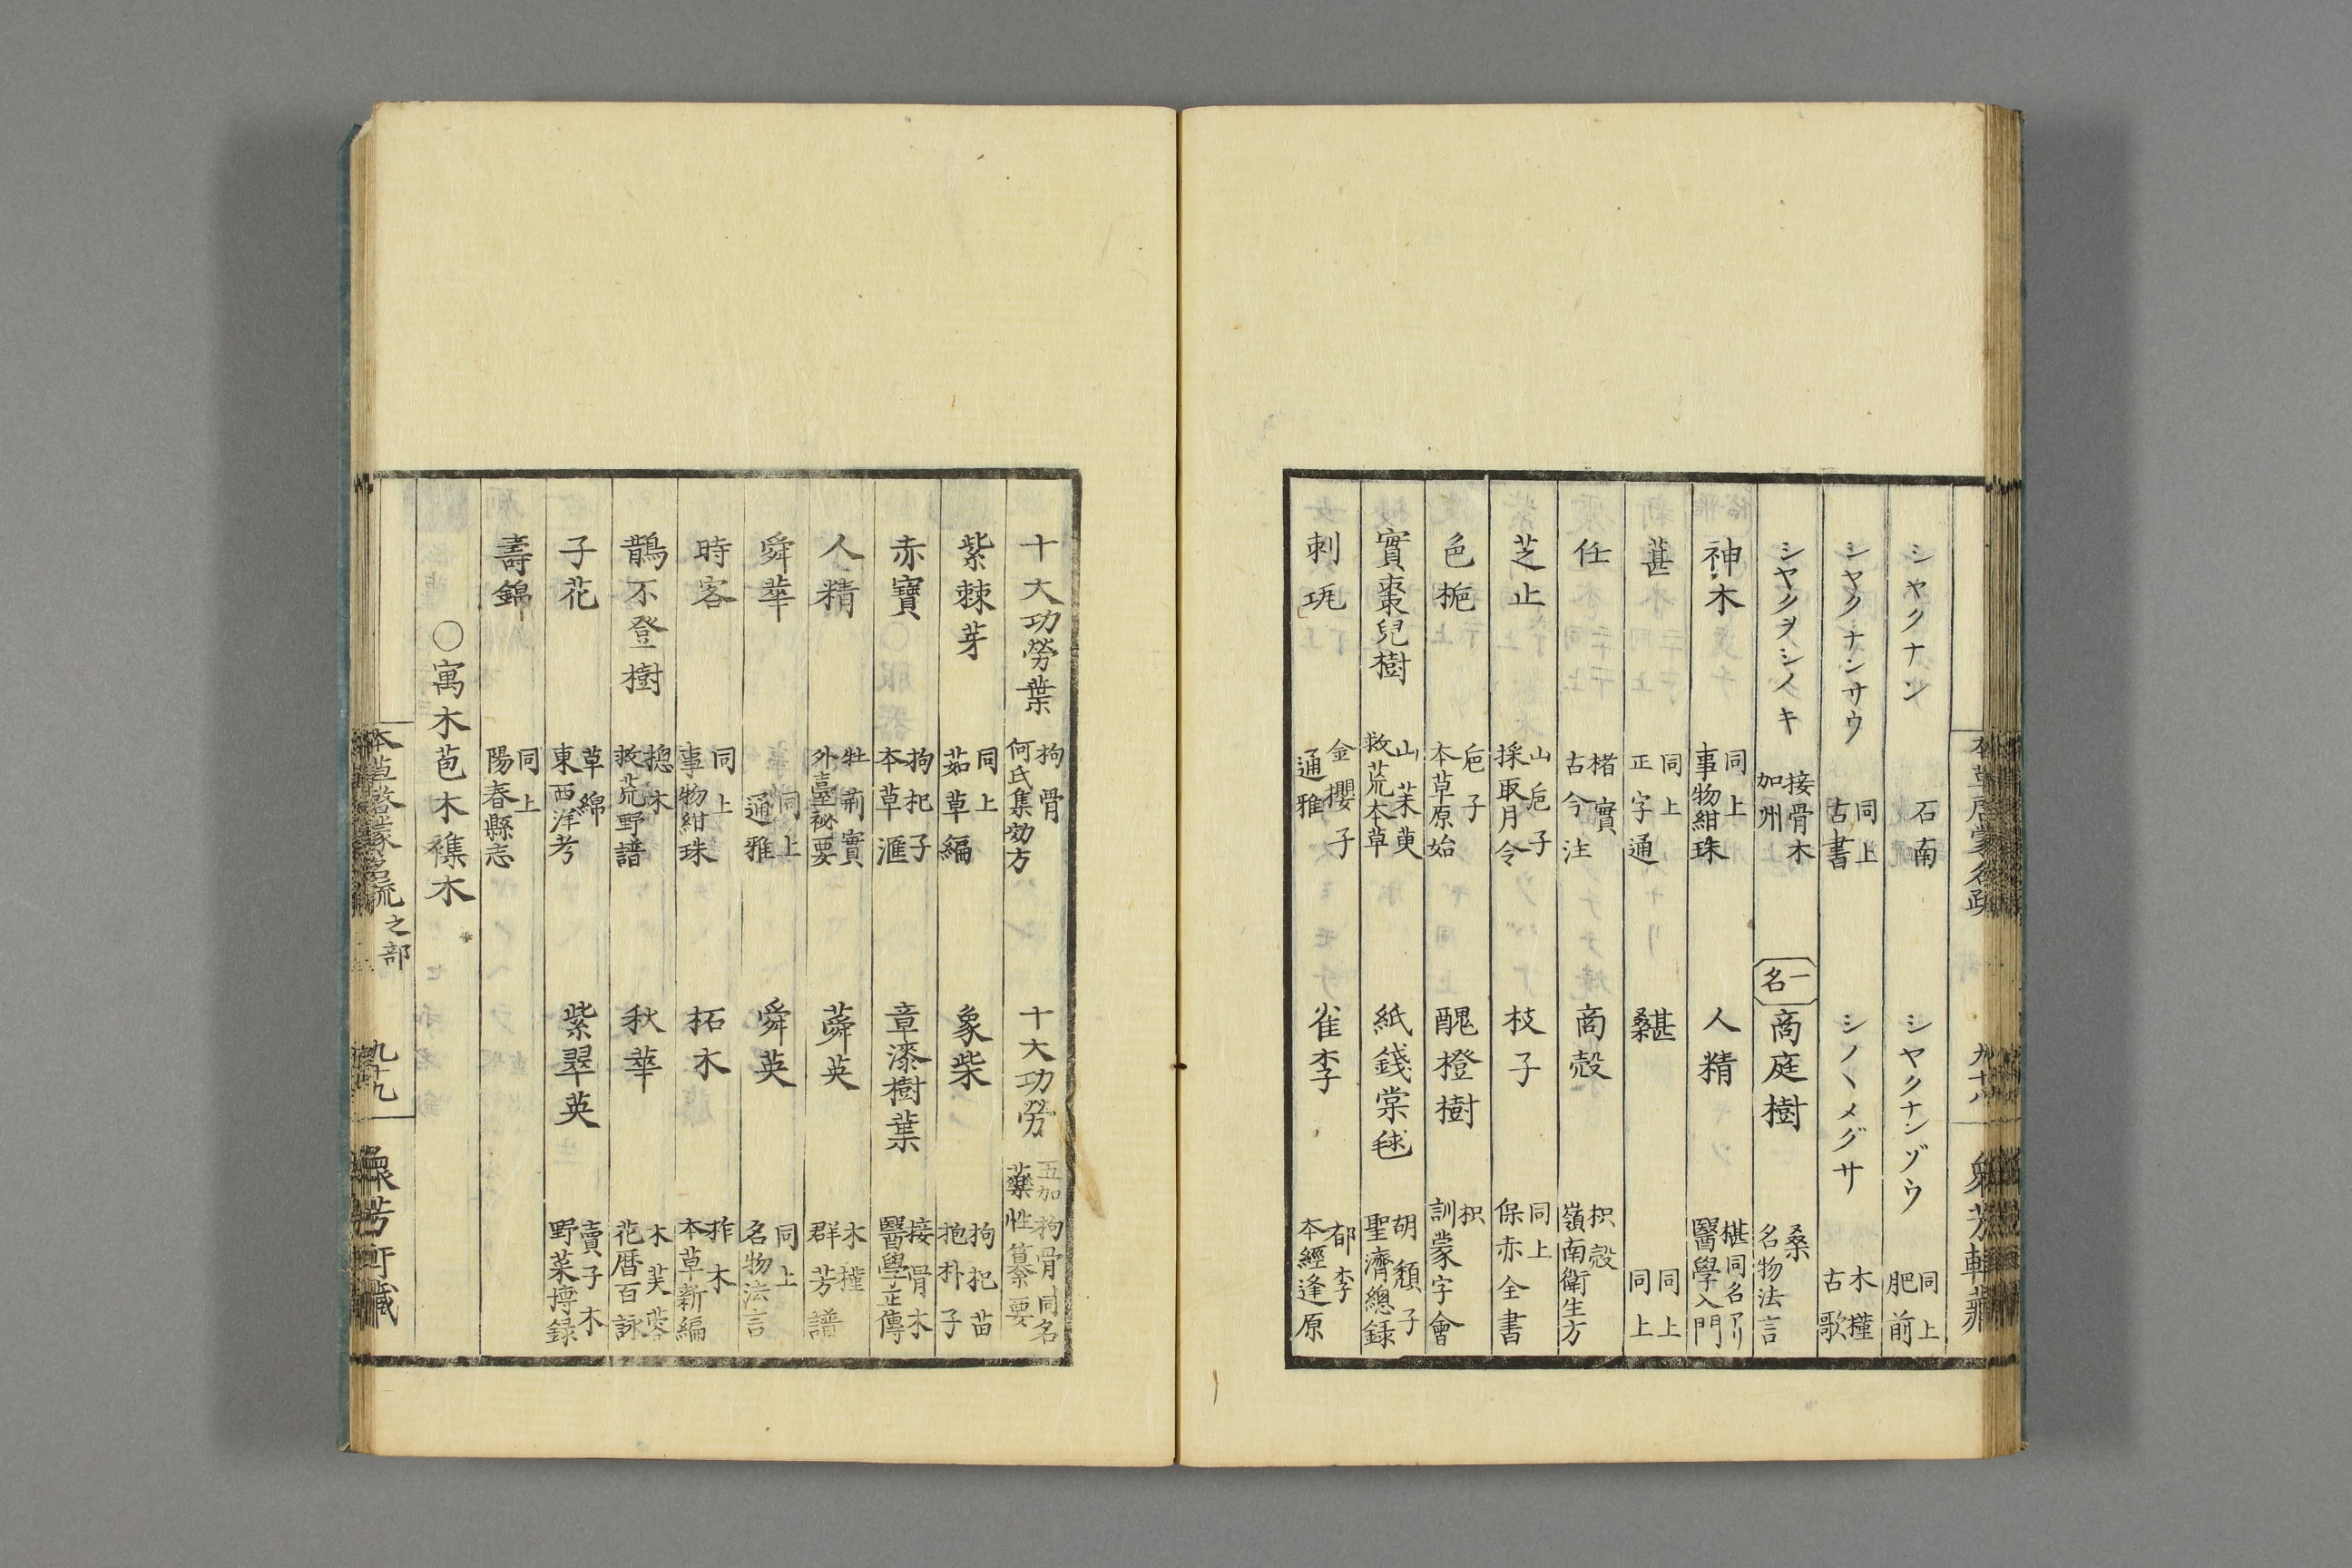 シヤクナン　石南　シヤクナンゾウ　同上　肥前
シヤクナンサウ　同上　古書　シノヽメグサ　木槿　古歌
シヤクヲシノキ　接骨木　加州　一名　商庭樹　桑　名物法言
神木　同上　事物紺珠　人精　椹同名アリ　醫學入門
葚　同上　正字通　同上　同上
任　楮實　古今注　商殻　枳殻　嶺南衛生方
芝止　山巵子　採取月令　枝子　同上　保赤全書
色梔　巵子　本草原始　醜橙樹　枳　訓蒙字會
實棗兒樹　山茱萸　救荒本草　紙錢棠毬　胡頽子　聖濟總録
刺　金櫻子　通雅　雀李　郁李　本經逢原
本草啓蒙名疏　九十八　衆芳軒藏
十大功勞葉　拘骨　何氏集効方　十大功勞　五加拘骨同名　藥性纂要
紫棘芽　同上　茹草編　象柴　拘杞苗　抱朴子
赤寶　拘杞子　本草滙　章漆樹葉　接骨木　醫學正傳
人精　牡荊實　外臺祕要　蕣英　木槿　群芳譜
舜華　同上　通雅　舜英　同上　名物法言
時客　同上　事物紺珠　柘木　柞木　本草新編
鵲不登樹　摠木　救荒野譜　秋華　木芙蓉　花暦百詠
子花　草綿　東西洋考　紫翠英　賣子木　野菜博録
壽錦　同上　陽春縣志
○寓木苞木襍木
本草啓蒙名疏　之部　九十九　衆芳軒藏